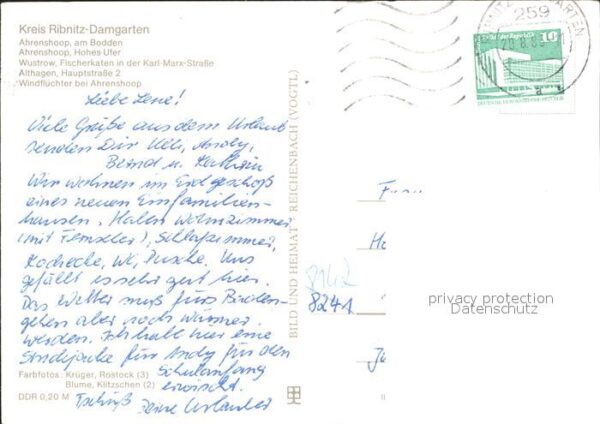 Kreis Ribnitz-Damgarten
Ahrenshoop, am Bodden
Ahrenshoop, Hohes Ufer
Wustrow, Fischerkaten in der Karl-Marx-Straße
Althagen, Hauptstraße 2
Windflüchter bei Ahrenshoop
Liebe Lene!
Viele Grüße aus dem Urlaub
senden Dir Ulli, Andy,
Bernd u. Kathrin
Wir wohnen im Erdgeschoß
eines neuen Einfamilien-
hauses. Haben Wohnzimmer
(mit Fernseher), Schlafzimmer,
Kochecke, WC, Dusche. Uns
gefällt es sehr gut hier.
Das Wetter muß fürs Baden-
gehen aber noch wärmer
werden. Ich habe hier eine
für Andy für den
Schulanfang
erwischt.
Tschüß Deine Urlauber
Farbfotos: Krüger, Rostock (3)
Blume, Klitzschen (2)
DDR 0,20 M
BILD UND HEIMAT · REICHENBACH (VOGTL)
259
10
DEUTSCHE DEMOKRATISCHE REPUBLIK
8241
privacy protection
Datenschutz